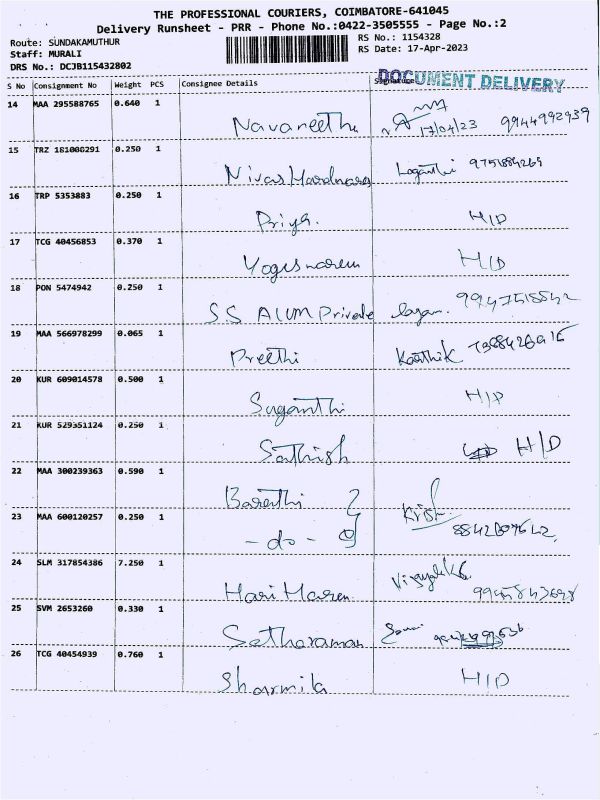 THE PROFESSIONAL COURIERS, COIMBATORE-641045
Delivery Runsheet - PRR - Phone No.:0422-3505555 - Page No.:2
Route: SUNDAKAMUTHUR
RS No.: 1154328
Staff: MURALI
RS Date: 17-Apr-2023
DRS No.: DCJB115432802
DOCUMENT DELIVERY
S No Consignment No Weight PCS Consignee Details Signature
14 MAA 295588765 0.640 1
Navaneetha 17/04/23 9944992939
15 TRZ 181000291 0.250 1
Nivas Hardwares Loganthi 9751884269
16 TRP 5353883 0.250 1
Priya. H/D
17 TCG 40456853 0.370 1
Yogeswaren H/D
18 PON 5474942 0.250 1
S.S ALUM Private
19 MAA 566978299 0.065 1
Preethi Karthik
20 KUR 609014578 0.500 1
Suganthi H/D
21 KUR 529351124 0.250 1
Sathish H/D
22 MAA 300239363 0.590 1
Barathi
23 MAA 600120257 0.250 1
- do - Krish
24 SLM 317854386 7.250 1
Hari Haren
25 SVM 2653260 0.330 1
Setharaman
26 TCG 40454939 0.760 1
Sharmila H/D